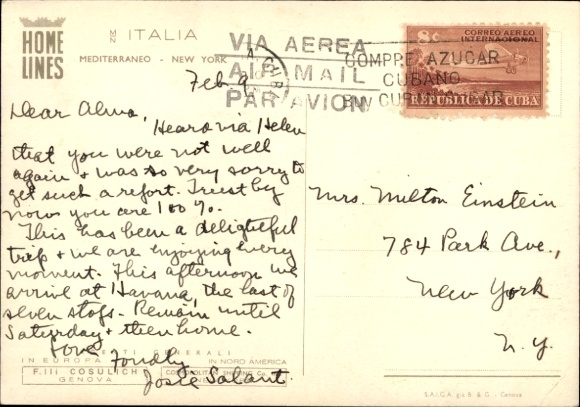 HOME
LINES
M/N ITALIA
MEDITERRANEO - NEW YORK
VIA AEREA
AIR MAIL
PAR AVION
COMPRE AZUCAR
CUBANO
BUY CUBAN SUGAR
8c
CORREO AEREO
INTERNACIONAL
REPUBLICA DE CUBA
Feb 9
Dear Alma,
Hear via Helen
that you were not well
again & was so very sorry to
get such a report. Trust by
now you are 100%.
This has been a delightful
trip & we are enjoying every
moment. This afternoon we
arrive at Havana, the last of
seven stops. Remain until
Saturday & then home.
Love
Fondly
Josie Salant.
Mrs. Milton Einstein
784 Park Ave.,
New York
N.Y.
GENERALI
IN EUROPA
IN NORD AMERICA
F.lli COSULICH
GENOVA
COSMOPOLITAN SHIPPING Co.
S.A.I.G.A. già B. & G. - Genova